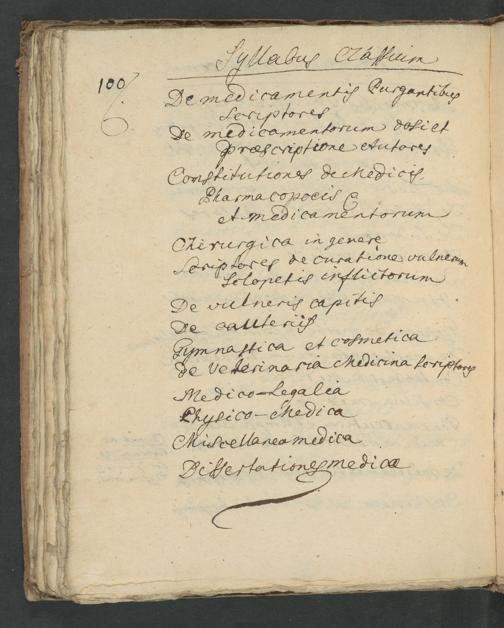 Syllabus Classium
100
De medicamentis Purgantibus
Scriptores
De medicamentorum dosi et
Præscriptione Autores
Constitutiones de Medicis
Pharmacopoeis
et medicamentorum
Chirurgica in genere
Scriptores de curatione vulnerum
Sclopetis inflictorum
De vulneris capitis
De cauteriis
Gymnastica et cosmetica
De Veterinaria Medicina scriptores
Medico-Legalia
Physico-Medica
Miscellanea medica
Dissertationes medicæ